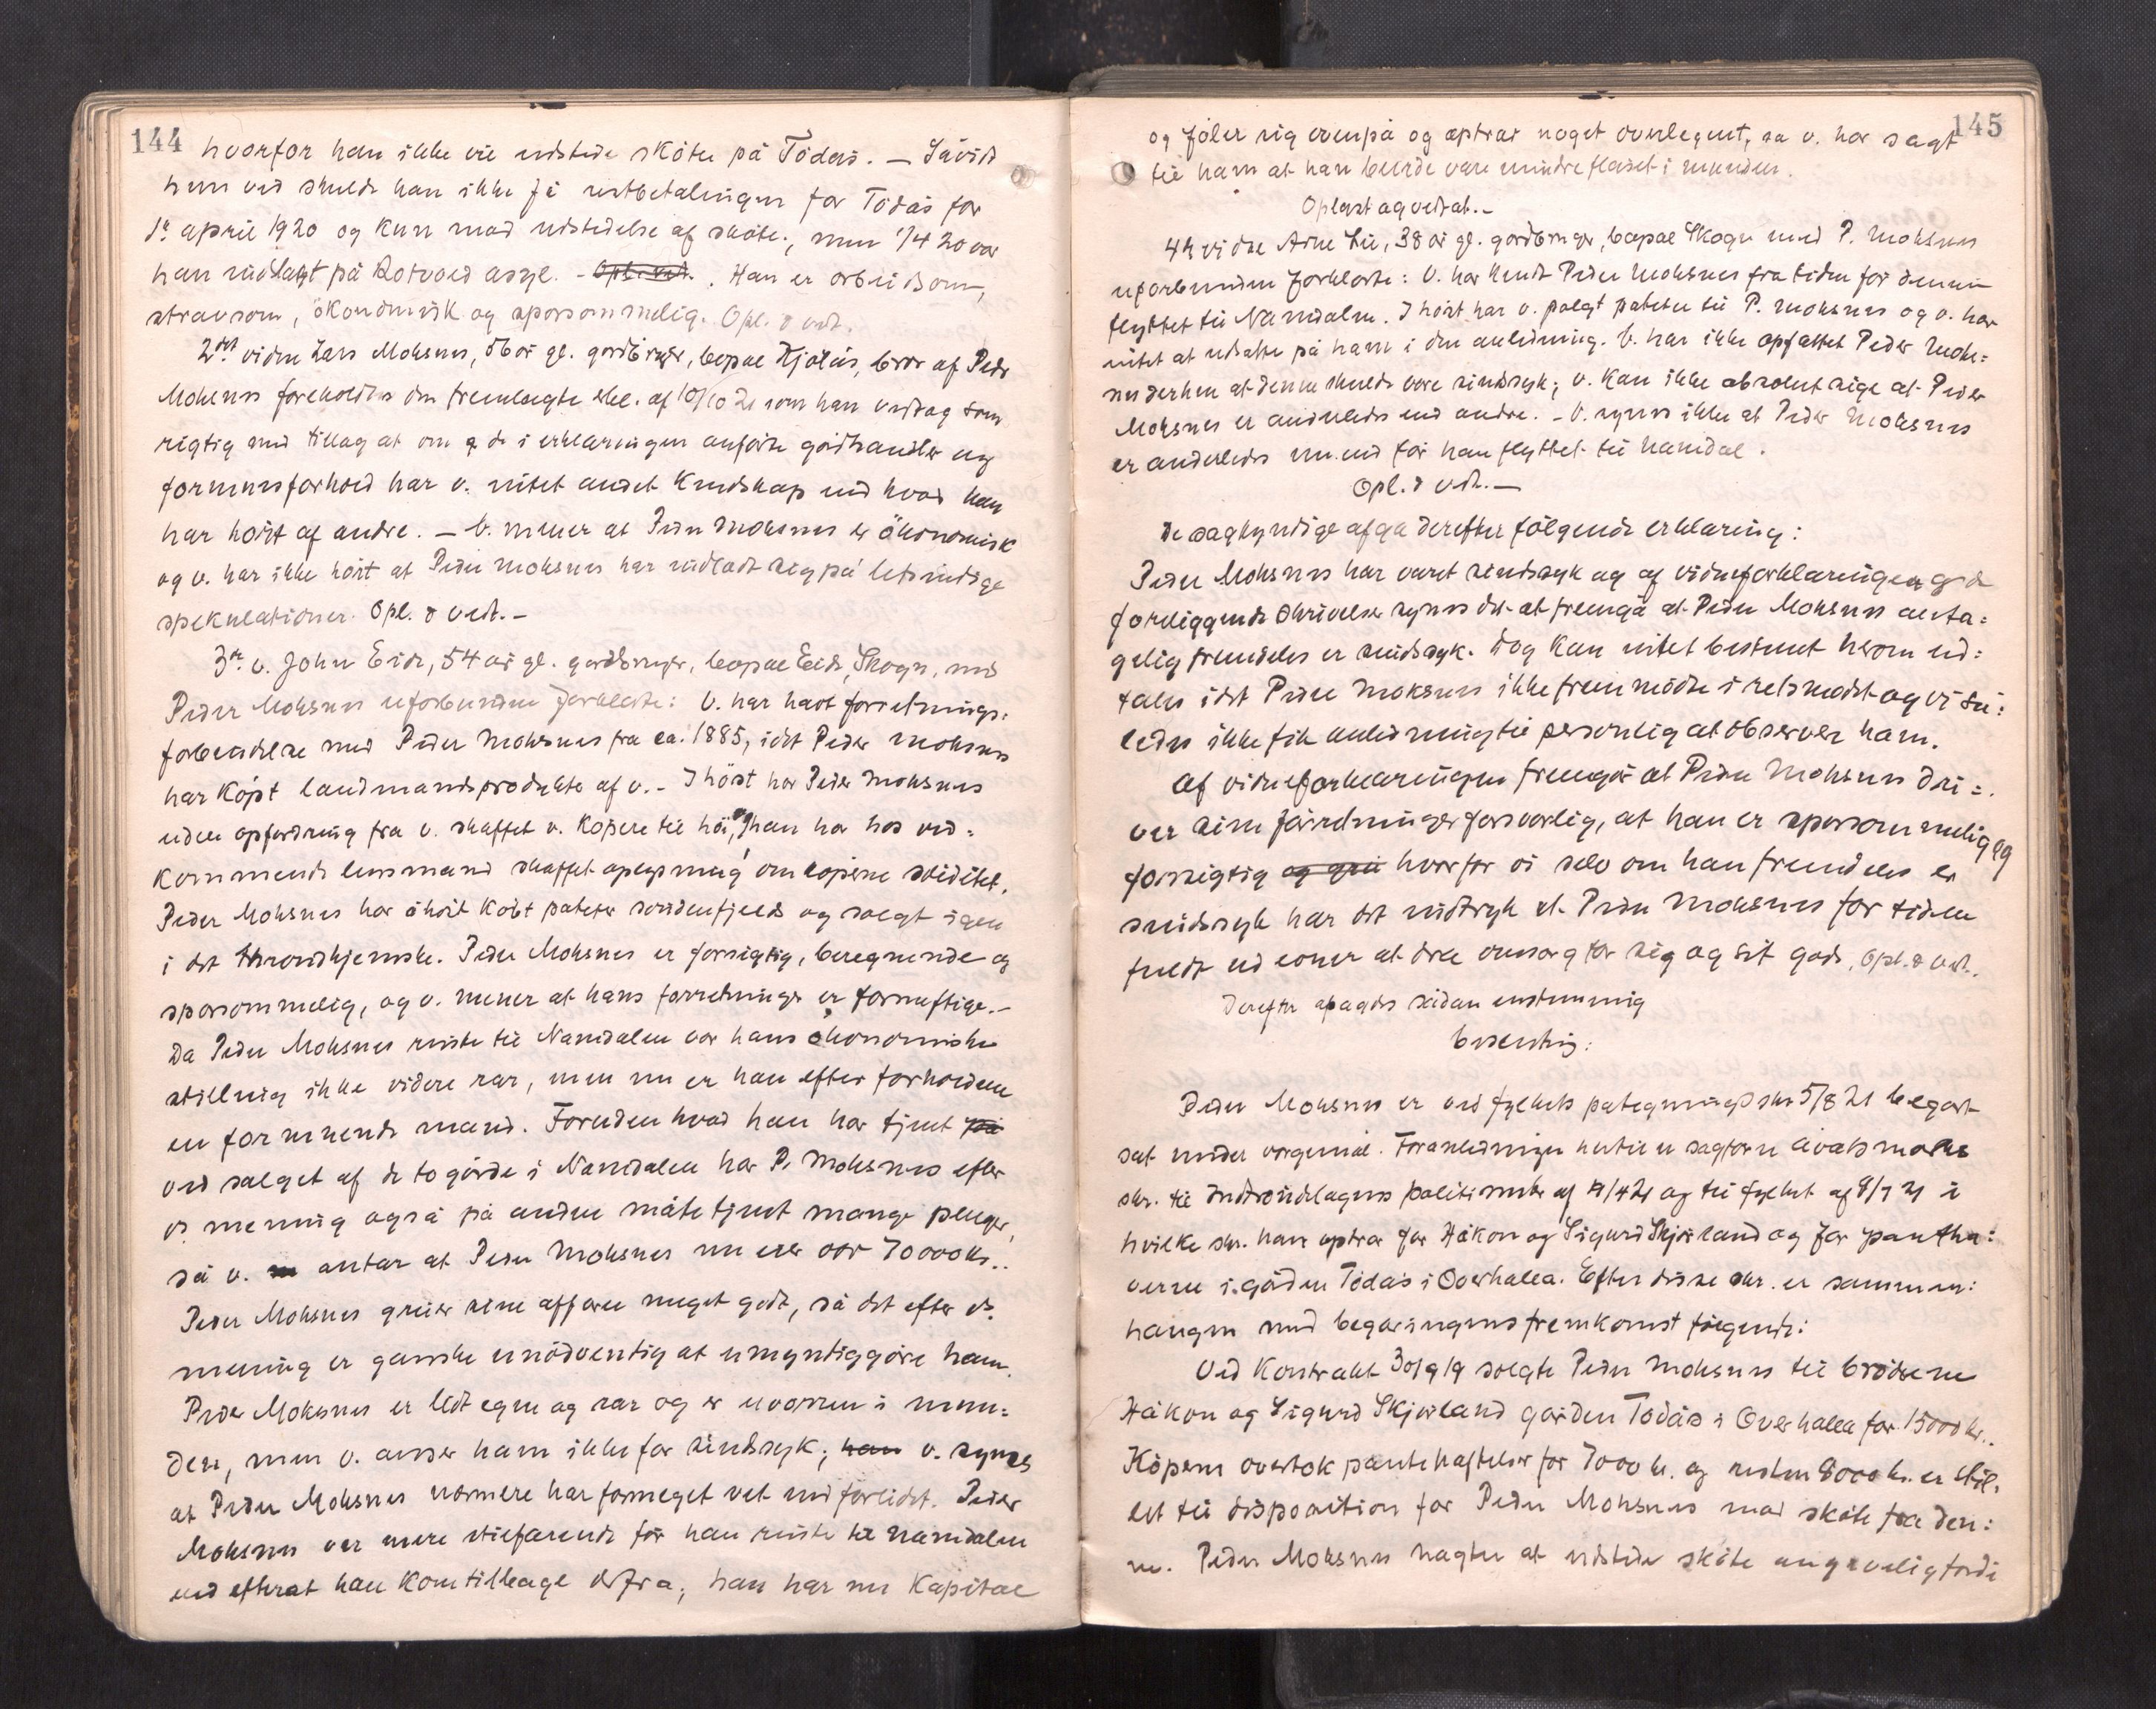 144
hvorfor han ikke vil udstede skøte på Tødås. — Såvidt
hun ved skulde han ikke få restbetalingen for Tødås før
1ste april 1920 og kun mod udstedelse af skøte; men 1/4 20 var
han indlagt på Rotvold asyl. - Opl. ved. . Han er arbeidsom,
stravsom, økonomisk og sparsommelig. Opl. & vedt.
2det vidne Lars Moksnes, år gl. gårdbruger, bopæl Hjelås, bror af Peder
Moksnes foreholdtes den fremlagte erkl. af 10/10 21 som han vedtog som
rigtig med tillæg at om de i erklæringen anførte gårdhandler og
formuesforhold har v. intet andet kendskap end hvad han
har hørt af andre. — V. mener at Peder Moksnes er økonomisk
og v. har ikke hørt at Peder Moksnes har indladt sig på letsindige
spekulationer. Opl. & vedt. -
3de v. John Eide, 54 år gl. gårdbruger, bopæl Eide, Skogn, med
Peder Moksnes uforbunden forklarte: V. har havt forretnings:
forbindelse med Peder Moksnes fra ca. 1885, idet Peder Moksnes
har køpt landmandsprodukter af v. - I høst har Peder Moksnes
uden opfordring fra v. skaffet v. køpere til høi, og han har hos ved:
kommende lensmand skaffet oplysning om køperne soliditet.
Peder Moksnes har i høst købt poteter søndenfjelds og solgt igen
i det throndhjemske. Peder Moksnes er forsigtig, beregnende og
sparsommelig, og v. mener at hans forretninger er fornuftige. -
Da Peder Moksnes reiste til Namdalen var hans økonomiske
stilling ikke videre rar, men nu er han efter forholdene
en formuende mand. Foruden hvad han har tjent på
ved salget af de to gårde i Namdalen har P. Moksnes efter
vs mening også på anden måte tjent mange penger,
så v. antar at Peder Moksnes nu eier over 70000 kr..
Peder Moksnes greier sine affærer meget godt, så det efter vs.
mening er ganske unødvendig at umyndiggøre ham.
Peder Moksnes er lidt egen og rar og er uvorren i mun:
den, men v. anser ham ikke for sindssyk; han v. synes
at Peder Moksnes nærmere har formeget vet end forlidt. Peder
Moksnes var mere stilfarende før han reiste til Namdalen
end efterat han kom tilbage derfra; han har nu kapital
145
og føler sig ovenpå og optrær noget overlegent, sa v. har sagt
til ham at han burde være mindre flåset i munden.
Oplæst og vedtat. -
4de vidne Arne Lie, 38 år gl. gårdbruger, bopæl Skogn med P. Moksnes
uforbunden forklarte: V. har kendt Peder Moksnes fra tiden før denne
flyttet til Namdalen. I høst har v. solgt poteter til P. Moksnes og v. har
intet at udsætte på ham i den anledning. V. har ikke opfattet Peder Moks:
nes derhen at denne skulde være sindssyk; v. kan ikke absolut sige at Peder
Moksnes er anderledes end andre. - V. synes ikke at Peder Moksnes
er anderledes nu end før han flyttet til Namdal.
Opl. & vedt. —
De sagkyndige afgav derefter følgende erklæring:
Peder Moksnes har været sindssyk og af vidneforklaringer og de
foreliggende skrivelser synes det at fremgå at Peder Moksnes anta:
gelig fremdeles er sindssyk. Dog kan intet bestemt herom ud:
tales idet Peder Moksnes ikke fremmødte i retsmødet og vi så:
ledes ikke fik anledning til personlig at observere ham.
Af vidneforklaringen fremgår at Peder Moksnes dri:
ver sine forretninger forsvarlig, at han er sparsommelig og
forsigtig og hvorfor vi selv om han fremdeles er
sindssyk har det indtryk at Peder Moksnes for tiden
fuldt ud evner at dra omsorg for sig og sit gods. Opl. & vedt.
Derefter afsagdes sådan enstemmig
beslutning:
Peder Moksnes er ved fylkets påtegningsskr. 5/8 21 begært
sat under vergemål. Foranledningen hertil er sagfører
skr. til Indtrøndelagens politimester af /4 21 og til fylket af 8/7 21 i
hvilke skr. han optrær for Håkon og Sigurd Skjørland og for pantha:
verne i gården Tødås i Overhalla. Efter disse skr. er sammen:
hængen med begæringens fremkomst følgende:
Ved kontrakt 30/9 19 solgte Peder Moksnes til brødrene
Håkon og Sigurd Skjørland gården Tødås i Overhalla for 15000 kr..
Køperne overtok pantehæftelser for 7000 kr. og resten 8000 kr. er stil:
let til disposition for Peder Moksnes mod skøte fra den:
ne. Peder Moksnes nægter at udstede skøte angivelig fordi